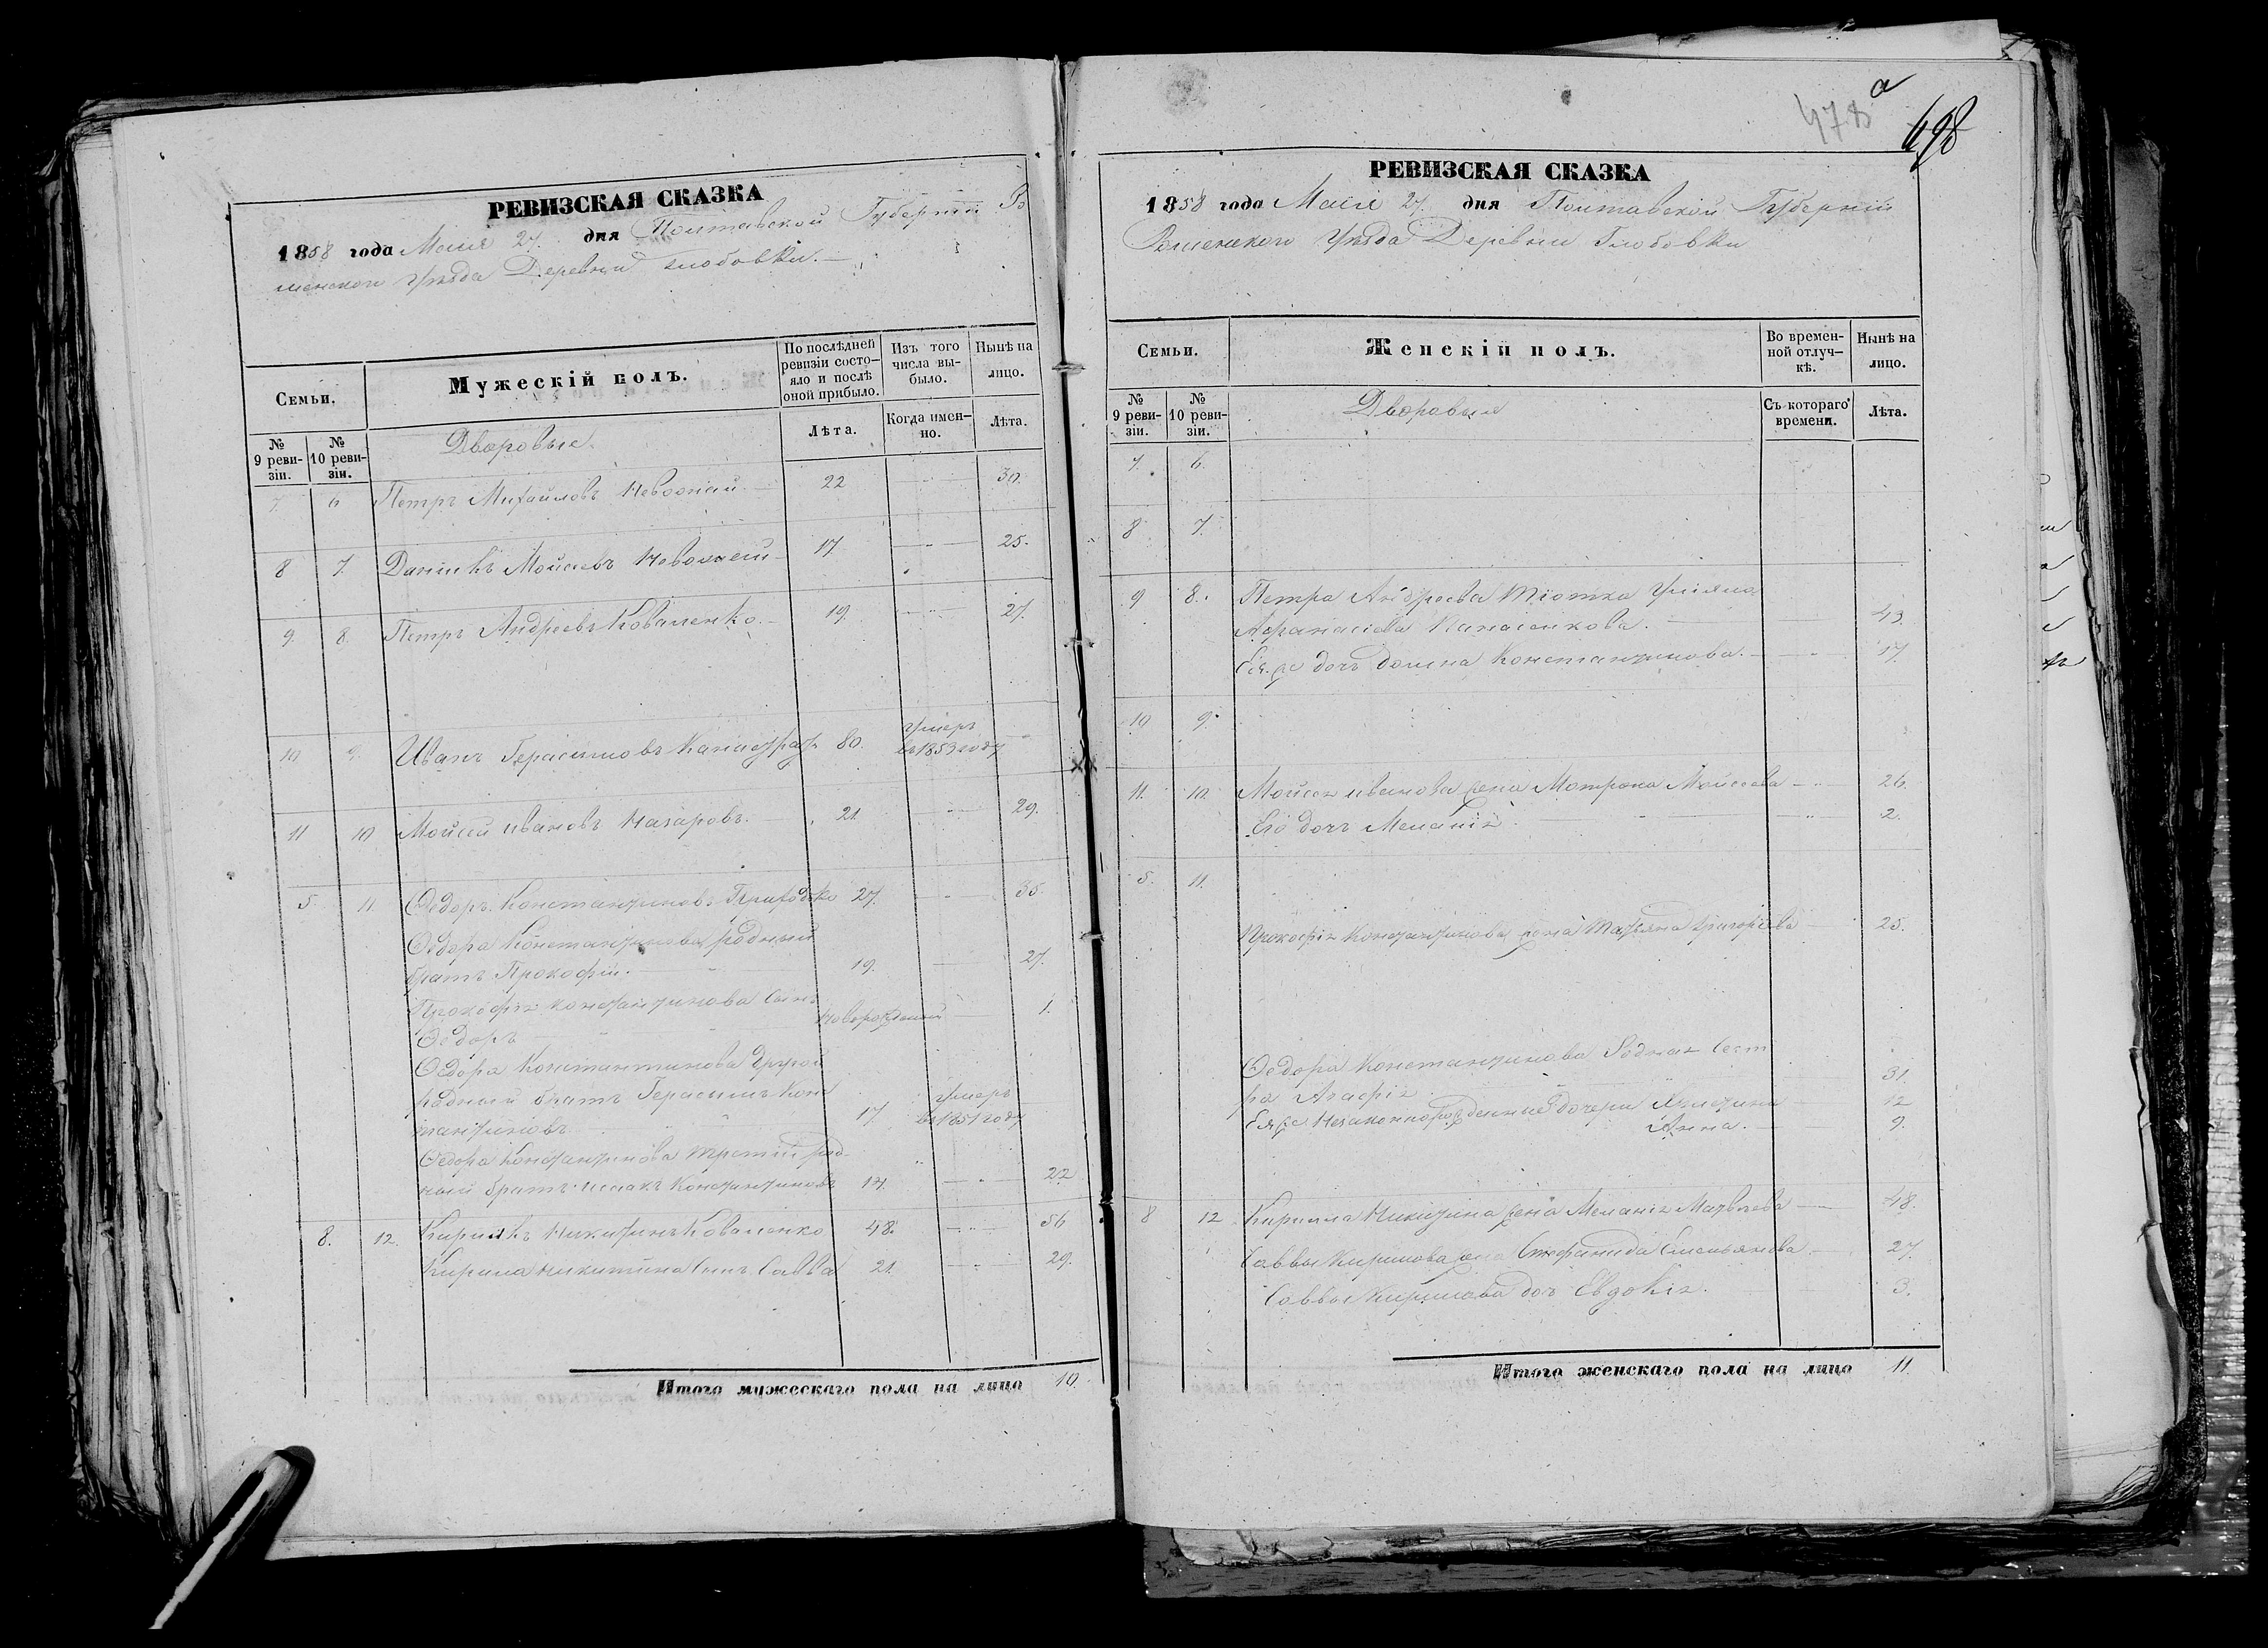 РЕВИЗСКАЯ СКАЗКА
1858 года Маія 27. дня Полтавской Губерніи Ро
менского Уѣзда Деревни Глюбовки.
Семьи.
Мужескій полъ.
По послѣдней ревизіи состо-яло и послѣ оной прибыло.
Изъ того числа вы-было.
Нынѣ на лицо.
№ 9 реви-зіи.
№ 10 реви-зіи.
Дворовые
Лѣта.
Когда имен-но.
Лѣта.
7. 6 Петръ Михайловъ 22 30.
8 7. Моисеевъ 17 25.
9. 8 Петръ Андреевъ Коваленко. 19. 27.
10 9. Иванъ Герасимовъ 80. Умеръ
въ 1853 году
11 10 Мойсей ивановъ Назаровъ. 21 29.
5. 11. Федоръ Константиновъ Приходько 27. 35.
Федора Константинова родный
братъ Прокофій. 19. 27.
Прокофія Константинова сынъ
Федоръ новорожденный 1.
Федора Константинова другой
родный братъ Герасимъ Конс
тантиновъ 17. Умеръ
въ 1851 году
Федора Константинова третий род-
ный братъ Исаакъ Константиновъ 14. 22
8. 12. Кирилъ Никитинъ Коваленко 48. 56
Кирила никитина сынъ Савва 21. 29.
Итого мужескаго пола на лицо 10.
а
478
498
РЕВИЗСКАЯ СКАЗКА
1858 года Маія 27. дня Полтавской Губерніи
Роменского Уѣзда Деревни Глюбовки
Семьи.
Женскій полъ.
Во времен-ной отлуч-кѣ.
Нынѣ на лицо.
№ 9 реви-зіи.
№ 10 реви-зіи.
Дворовыя
Съ котораго времени.
Лѣта.
7. 6.
8 7.
9 8. Петра Андреева тіотка Уліяна
Афанасіева Панасенкова. 43.
Ея же дочь Домна Константинова. 17.
10 9.
11. 10 Мойсея иванова жена Матрона Мойсеева 26.
Его дочь Меланія 2.
5. 11.
Прокофія Константинова жена Татьяна Григорьева 25.
Федора Константинова Родная сест
ра Агафія 31.
Ея же Незаконнорожденные дочери 12
Анна. 9.
8 12 Кирилла Никитина жена Меланія Матвѣева 48.
Саввы Кирилова жена Стефанида Емельянова 27.
Саввы Кирилова доч Евдокія. 3.
Итого женскаго пола на лицо 11.